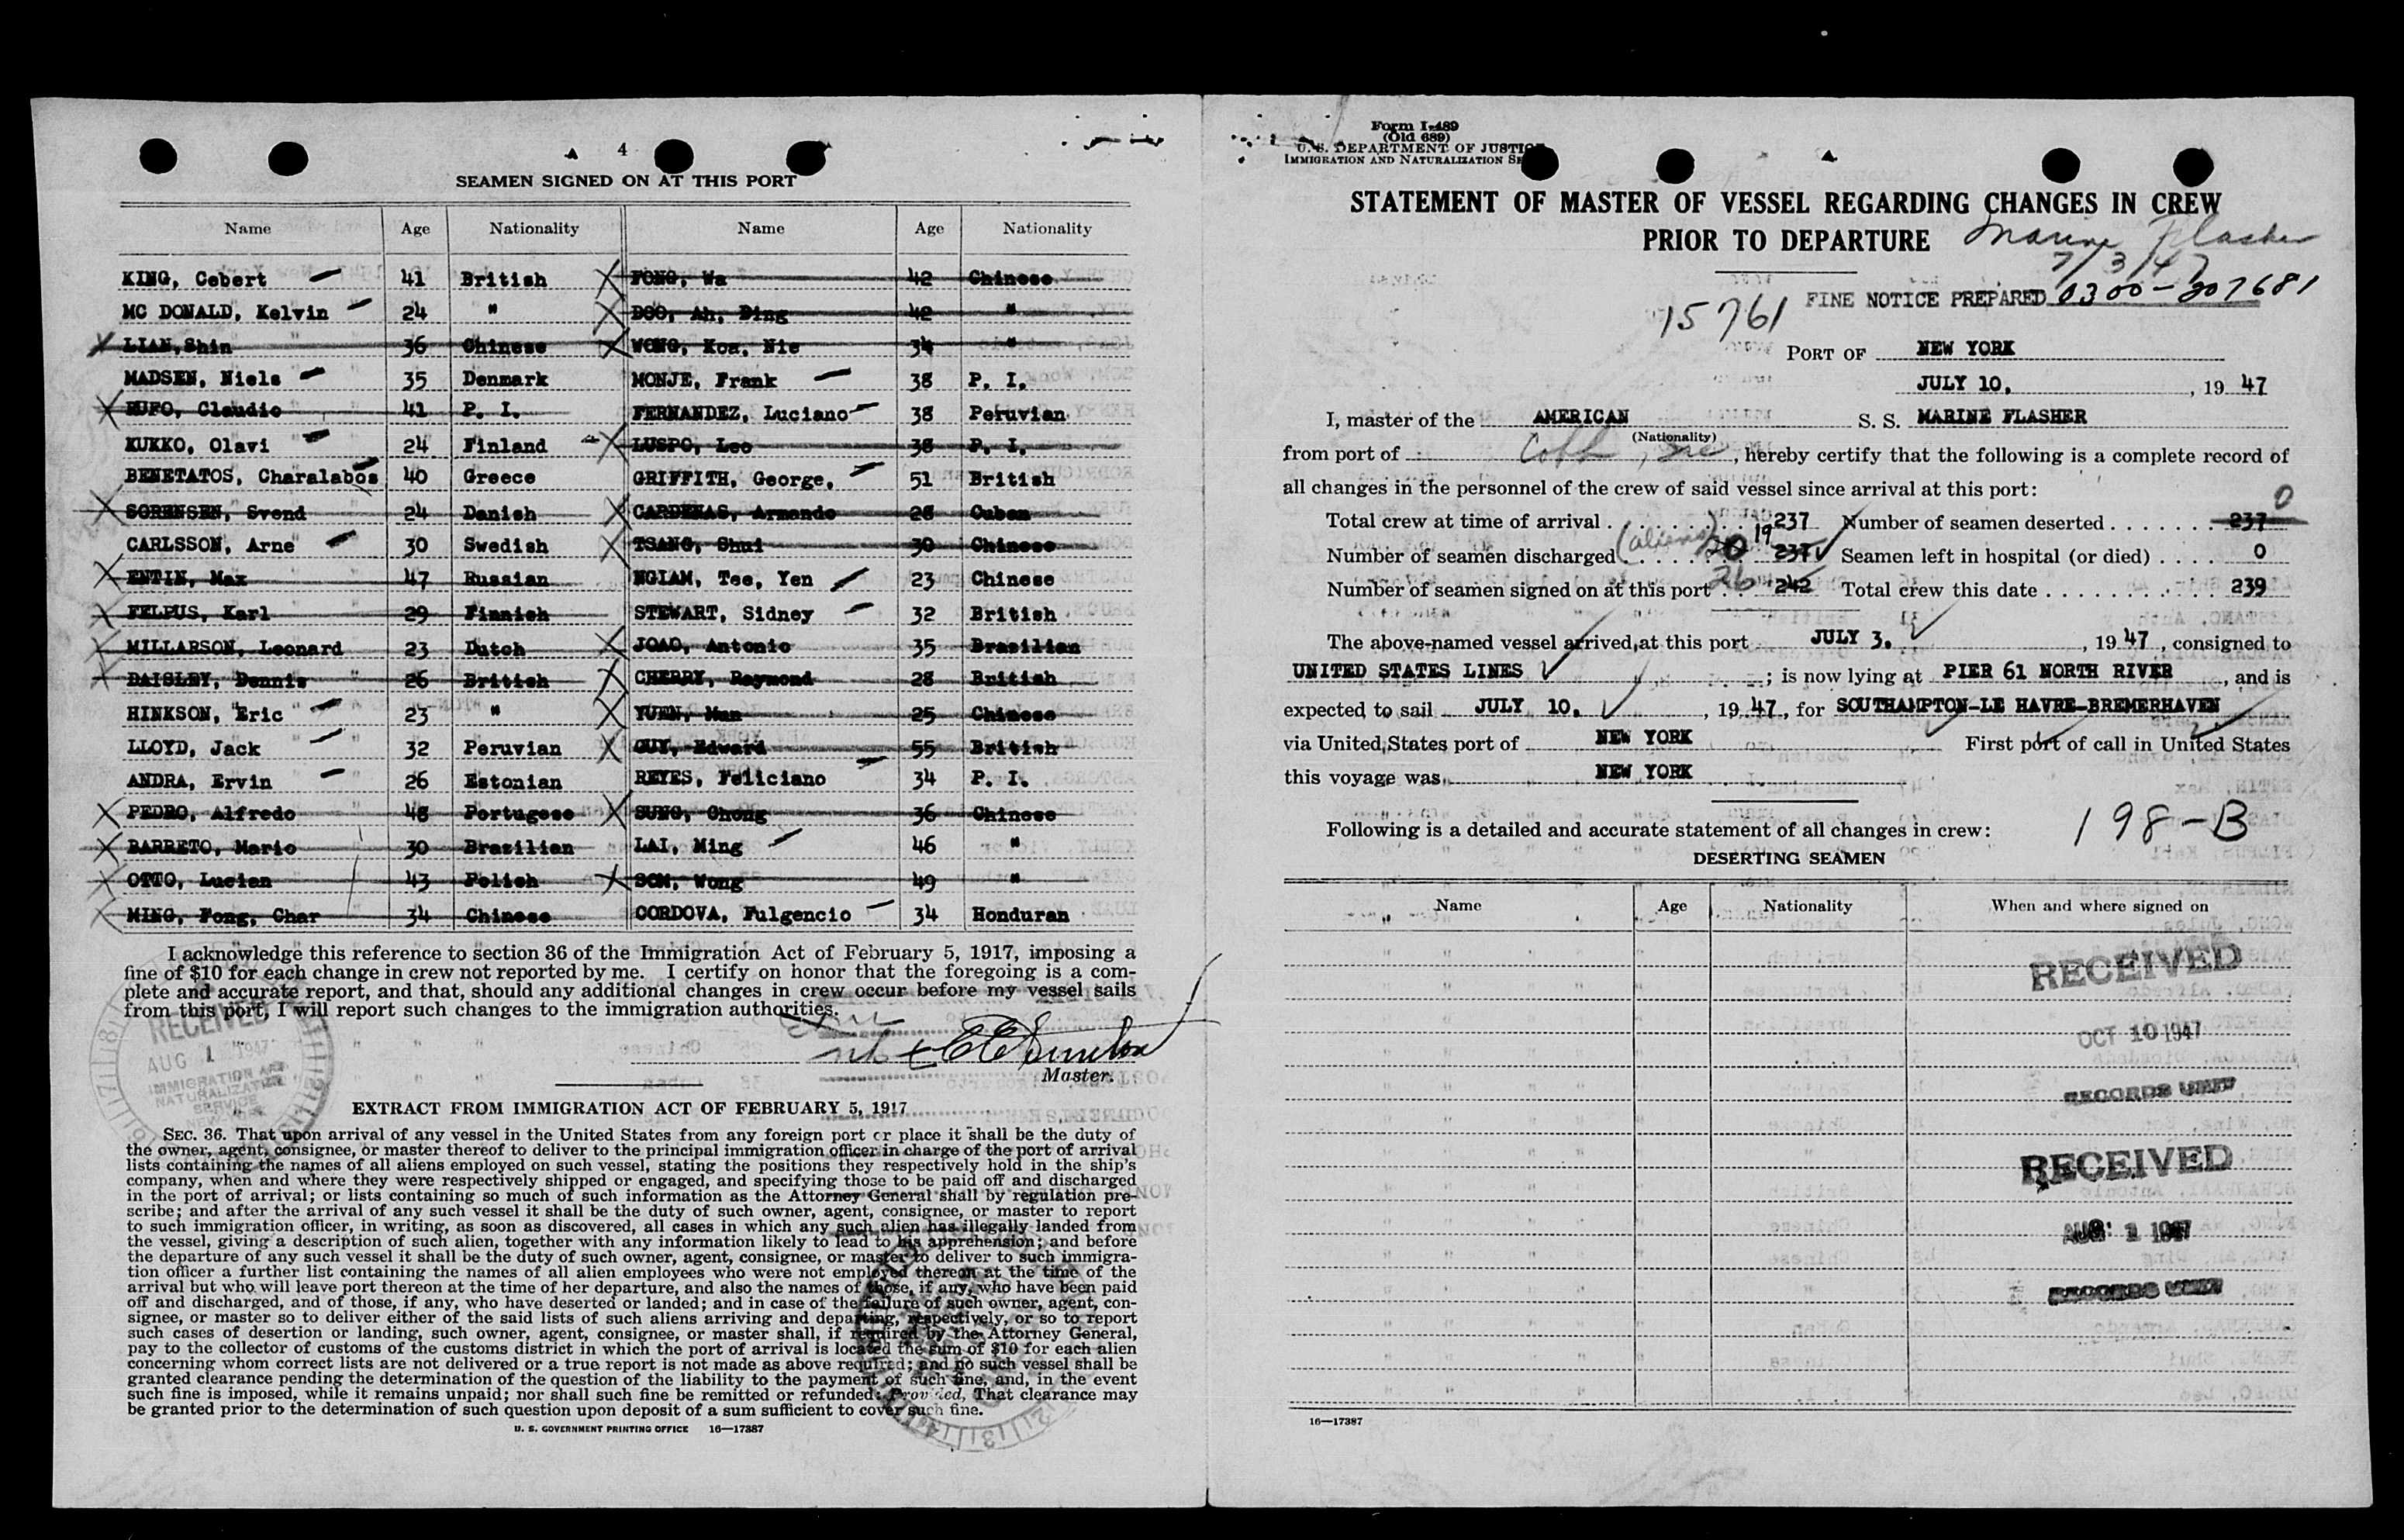 4
SEAMEN SIGNED ON AT THIS PORT
Name Age Nationality Name Age Nationality
KING, Cebert 41 British FONG, Wa 42 Chinese
MC DONALD, Kelvin 24 " DOO, Ah, Ding 42 "
LIAN, Shin 36 Chinese WONG, Koa, Nie 34 "
MADSEN, Niels 35 Denmark MONJE, Frank 38 P. I.
RUFO, Claudio 41 P. I. FERNANDEZ, Luciano 38 Peruvian
KUKKO, Olavi 24 Finland LUSPO, Leo 38 P. I.
BENETATOS, Charalabos 40 Greece GRIFFITH, George, 51 British
SORENSEN, Svend 24 Danish CARDENAS, Armando 28 Cuban
CARLSSON, Arne 30 Swedish TSANG, Shui 30 Chinese
ENTIN, Max 47 Russian NGIAM, Tee, Yen 23 Chinese
FELPUS, Karl 29 Finnish STEWART, Sidney 32 British
MILLARSON, Leonard 23 Dutch JOAO, Antonio 35 Brasilian
DAISLEY, Dennis 26 British CHERRY, Raymond 28 British
HINKSON, Eric 23 " YUEN, Man 25 Chinese
LLOYD, Jack 32 Peruvian GUY, Edward 55 British
ANDRA, Ervin 26 Estonian REYES, Feliciano 34 P. I.
PEDRO, Alfredo 48 Portugese SUNG, Chong 36 Chinese
BARRETO, Mario 30 Brazilian LAI, Ming 46 "
OTTO, Lucian 43 Polish SOM, Wong 49 "
MING, Fong, Char 34 Chinese CORDOVA, Fulgencio 34 Honduran
I acknowledge this reference to section 36 of the Immigration Act of February 5, 1917, imposing a
fine of $10 for each change in crew not reported by me. I certify on honor that the foregoing is a com-
plete and accurate report, and that, should any additional changes in crew occur before my vessel sails
from this port, I will report such changes to the immigration authorities.
RECEIVED
AUG 1 1947
IMMIGRATION AND
NATURALIZATION
SERVICE
Master.
EXTRACT FROM IMMIGRATION ACT OF FEBRUARY 5, 1917
SEC. 36. That upon arrival of any vessel in the United States from any foreign port or place it shall be the duty of
the owner, agent, consignee, or master thereof to deliver to the principal immigration officer in charge of the port of arrival
lists containing the names of all aliens employed on such vessel, stating the positions they respectively hold in the ship's
company, when and where they were respectively shipped or engaged, and specifying those to be paid off and discharged
in the port of arrival; or lists containing so much of such information as the Attorney General shall by regulation pre-
scribe; and after the arrival of any such vessel it shall be the duty of such owner, agent, consignee, or master to report
to such immigration officer, in writing, as soon as discovered, all cases in which any such alien has illegally landed from
the vessel, giving a description of such alien, together with any information likely to lead to his apprehension; and before
the departure of any such vessel it shall be the duty of such owner, agent, consignee, or master to deliver to such immigra-
tion officer a further list containing the names of all alien employees who were not employed thereon at the time of the
arrival but who will leave port thereon at the time of her departure, and also the names of those, if any, who have been paid
off and discharged, and of those, if any, who have deserted or landed; and in case of the failure of such owner, agent, con-
signee, or master so to deliver either of the said lists of such aliens arriving and departing, respectively, or so to report
such cases of desertion or landing, such owner, agent, consignee, or master shall, if required by the Attorney General,
pay to the collector of customs of the customs district in which the port of arrival is located the sum of $10 for each alien
concerning whom correct lists are not delivered or a true report is not made as above required; and no such vessel shall be
granted clearance pending the determination of the question of the liability to the payment of such fine, and, in the event
such fine is imposed, while it remains unpaid; nor shall such fine be remitted or refunded: Provided, That clearance may
be granted prior to the determination of such question upon deposit of a sum sufficient to cover such fine.
U. S. GOVERNMENT PRINTING OFFICE 16—17387
Form I-489
(Old 689)
U. S. DEPARTMENT OF JUSTICE
IMMIGRATION AND NATURALIZATION SE
STATEMENT OF MASTER OF VESSEL REGARDING CHANGES IN CREW
PRIOR TO DEPARTURE Marine Flasher
7/3/47
FINE NOTICE PREPARED 0300-207681
15761
PORT OF NEW YORK
JULY 10, , 19 47
I, master of the AMERICAN S. S. MARINE FLASHER
(Nationality)
from port of Cobh, Ire, hereby certify that the following is a complete record of
all changes in the personnel of the crew of said vessel since arrival at this port: 0
Total crew at time of arrival . . . . . . . 237 Number of seamen deserted . . . . . . . 237
Number of seamen discharged (aliens) 20 19 237 Seamen left in hospital (or died) . . . . 0
Number of seamen signed on at this port 26 242 Total crew this date . . . . . . . . . . . 239
The above-named vessel arrived at this port JULY 3. , 19 47 , consigned to
UNITED STATES LINES ; is now lying at PIER 61 NORTH RIVER , and is
expected to sail JULY 10. , 19 47, for SOUTHAMPTON-LE HAVRE-BREMERHAVEN
via United States port of NEW YORK First port of call in United States
this voyage was NEW YORK
Following is a detailed and accurate statement of all changes in crew: 198-B
DESERTING SEAMEN
Name Age Nationality When and where signed on
RECEIVED
OCT 10 1947
RECORDS UNIT
RECEIVED
AUG 1 1947
RECORDS UNIT
16—17387